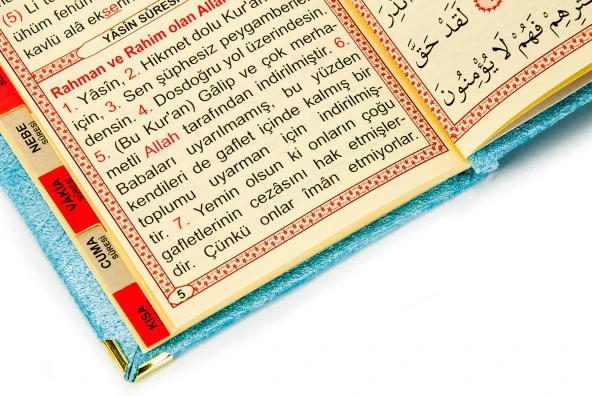 (5) Li
ühüm fehüm
kavlü alâ eksе
YÂSİN SÛRESİ
Rahman ve Rahim olan Allah
1. Yâsîn, 2. Hikmet dolu Kur'an
için, 3. Sen şüphesiz peygamberler
densin. 4. Dosdoğru yol üzerindesin.
5. (Bu Kur'an) Gâlip ve çok merha-
metli Allah tarafından indirilmiştir. 6.
Babaları uyarılmamış, bu yüzden
kendileri de gaflet içinde kalmış bir
toplumu uyarman için indirilmiş-
tir. 7. Yemin olsun ki onların çoğu
gafletlerinin cezâsını hak etmişler-
dir. Çünkü onlar îmân etmiyorlar.
5
NEBE
SÛRESİ
VAKIA
SÛRESİ
CUMA
SÛRESİ
KISA
لَقَدْ حَقَّ
فَهُمْ لَا يُؤْمِنُونَ